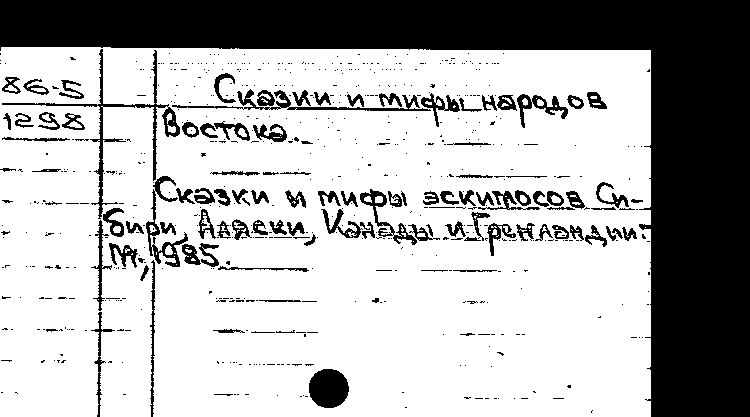 86-5
1298
Сказки и мифы народов
Востока.
Сказки и мифы эскимосов Си-
бири, Аляски, Канады и Гренландии.-
М., 1985.